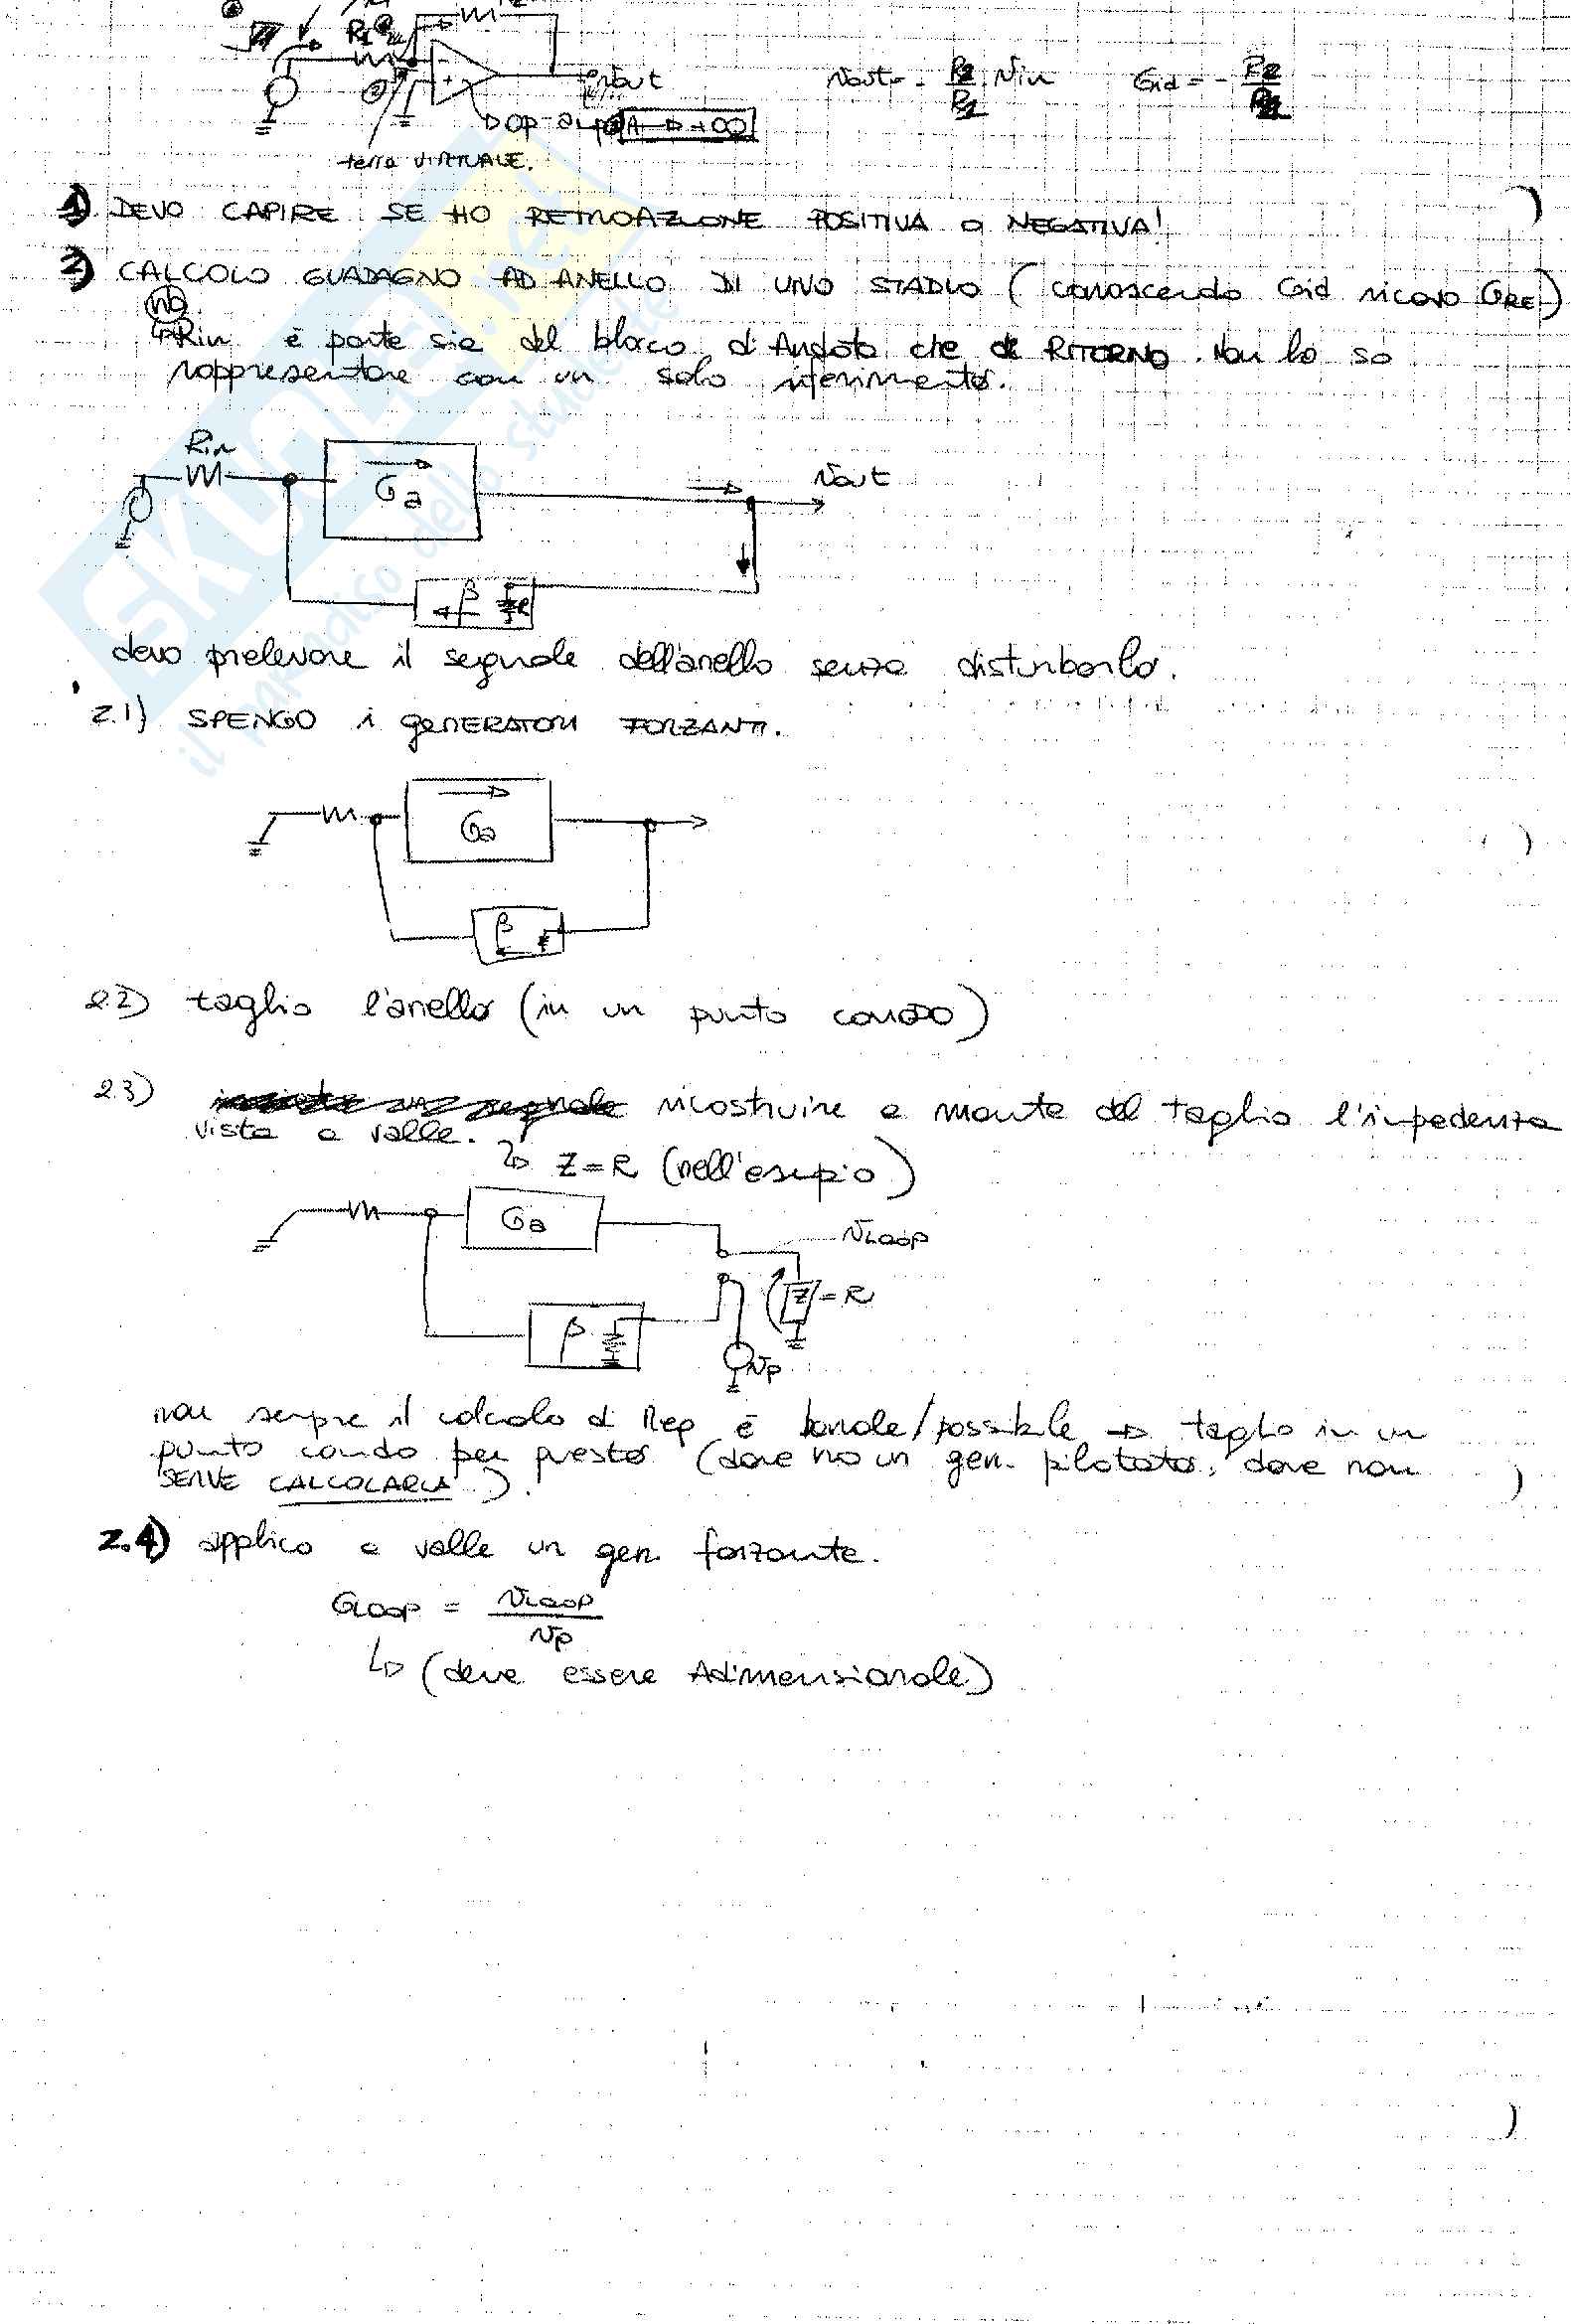 R1
Vout
Vout = - R2/R1 Vin Gid = - R2/R1
OP-amp A → +∞
terra VIRTUALE.
1) DEVO CAPIRE SE HO RETROAZIONE POSITIVA O NEGATIVA!
2) CALCOLO GUADAGNO AD ANELLO DI UNO STADIO (conoscendo Gid ricavo GRE)
NB.
↳ Rin è parte sia del blocco d'Andata che di RITORNO. Non lo so
rappresentare con un solo riferimento.
Rin
Ga
Vout
β R
devo prelevare il segnale dell'anello senza disturbarlo.
2.1) SPENGO i GENERATORI FORZANTI.
Ga
β
2.2) taglio l'anello (in un punto comodo)
2.3) ricostruire a monte del taglio l'impedenza
vista a valle.
↳ Z=R (nell'esepio)
Ga
VLOOP
Z =R
β
Vp
non sempre il calcolo di è banale/possibile → taglio in un
punto comodo per questo (dove ho un gen. pilotato, dove non
SERVE CALCOLARLA).
2.4) applico a valle un gen. forzante.
GLOOP = VLOOP/Vp
↳ (deve essere Adimensionale)
SKUOLA.net
il paradiso dello studente